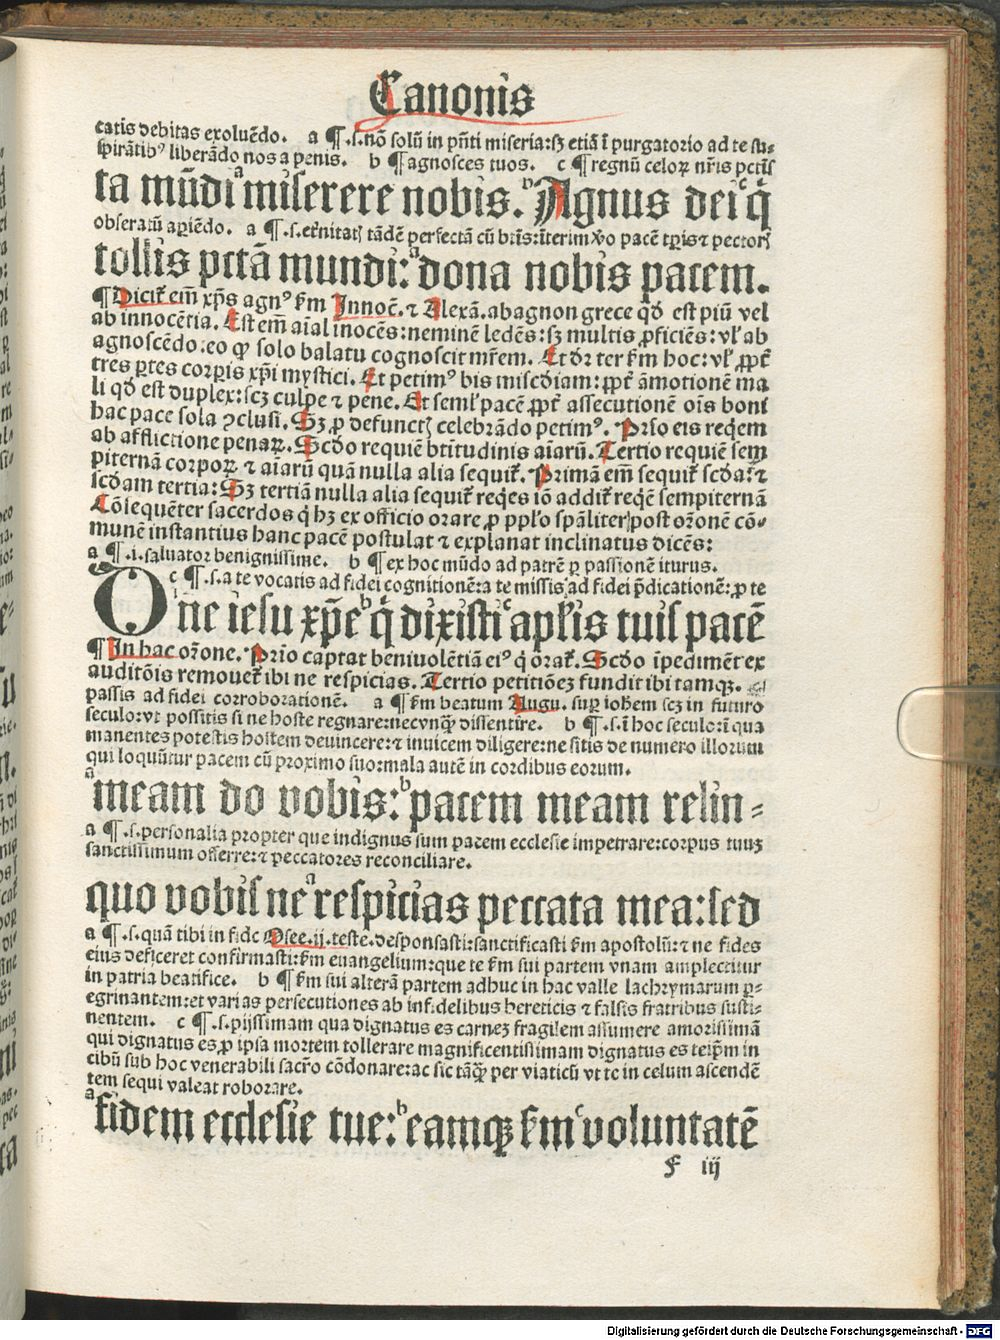 Canonis
catis debitas exoluēdo. a ¶.s.nō solū in pn̄ti miseria:sꝫ etiā ī purgatorio ad te su-
spirātibꝰ liberādo nos a penis. b ¶ agnosces tuos. c ¶ regnū celoꝝ nr̄is pctīs
ta mūdi miserere nobis. Agnus dei q̄
obseratū aꝑiēdo. a ¶.s. tādē perfectā cū bt̄is:interim ꝟo pacē tꝑis ⁊ pectoris
tollis pctā mundi: dona nobis pacem.
¶ Dicit̄ em̄ xp̄s agnꝰ ẜm Innocē. ⁊ Alexā.ab agnon grece qd̄ est piū vel
ab innocētia. Est em̄ aīal inocēs:neminē ledēs:sꝫ multis ꝓficiēs: vl̓ ab
agnoscēdo:eo ꝙ solo balatu cognoscit mr̄em. Et dr̄ ter ẜm hoc: vl̓ ꝓpt̄
tres ꝑtes corꝑis xp̄i mystici. Et petimꝰ bis misc̄diam: ꝓpt̄ āmotionē ma
li qd̄ est duplex:scꝫ culpe ⁊ pene. Et seml̓ pacē ꝓpt̄ assecutionē oīs boni
hac pace sola ꝯclusi. Sꝫ ꝓ defunctꝭ celebrādo petimꝰ. Prīo eis reqͥem
ab afflictione penaꝝ. Scd̄o requiē btītudinis aīarū. Tertio requiē sem
piternā corpoꝝ ⁊ aīarū quā nulla alia sequit̄. Primā em̄ sequit̄ scd̄a: ⁊
scd̄am tertia: Sꝫ tertiā nulla alia sequit̄ reqͥes iō addit̄ reqͥē sempiternā
Cōsequēter sacerdos qͥ hꝫ ex officio orare ꝓ ppl̓o spāliter post or̄onē cō-
munē instantius hanc pacē postulat ⁊ explanat inclinatus dicēs:
a ¶.i.saluator benignissime. b ¶ ex hoc mūdo ad patrē ꝑ passionē iturus.
c ¶.s.a te vocatis ad fidei cognitionē:a te missis ad fidei p̄dicationē:ꝓ te
One iesu xp̄e q̄ dixisti apl̓is tuis pacē
¶ In hac or̄one. Prīo captat beniuolētiā eiꝰ qͥ orat̄. Scd̄o īpedimēt ex
auditōis remouet̄ ibi ne respicias. Tertio petitiōeꝫ fundit ibi tamqꝫ.
passis ad fidei corroborationē. a ¶ ẜm beatum Augu. suꝑ ioh̄em scꝫ in futuro
seculo:vt possitis si ne hoste regnare:necvnqͣꝫ dissentire. b ¶.s.ī hoc seculo:ī qua
manentes potestis hostem deuincere:⁊ inuicem diligere:ne sitis de numero illorum
qui loquūtur pacem cū proximo suo:mala autē in cordibus eorum.
meam do vobis: pacem meam relin-
a ¶.s.personalia propter que indignus sum pacem ecclesie impetrare:corpus tuuꝫ
sanctissimum offerre:⁊ peccatores reconciliare.
quo vobis ne respicias peccata mea:sed
a ¶.s.quā tibi in fide Osee.ij.teste.desponsasti:sanctificasti ẜm apostolū:⁊ ne fides
eius deficeret confirmasti:ẜm euangelium:que te ẜm sui partem vnam amplectitur
in patria beatifice. b ¶ ẜm sui alterā partem adhuc in hac valle lachrymarum ꝑ-
egrinantem:et varias persecutiones ab infidelibus hereticis ⁊ falsis fratribus susti-
nentem. c ¶.s.pijssimam qua dignatus es carneꝫ fragilem assumere amorissimā
qui dignatus es ꝓ ipsa mortem tollerare magnificentissimam dignatus es teip̄m in
cibū sub hoc venerabili sacr̄o cōdonare:ac sic tāqͣꝫ per viaticū vt te in celum ascendē
tem sequi valeat roborare.
fidem ecclesie tue: eamqꝫ ẜm voluntatē
f iij
Digitalisierung gefördert durch die Deutsche Forschungsgemeinschaft - DFG